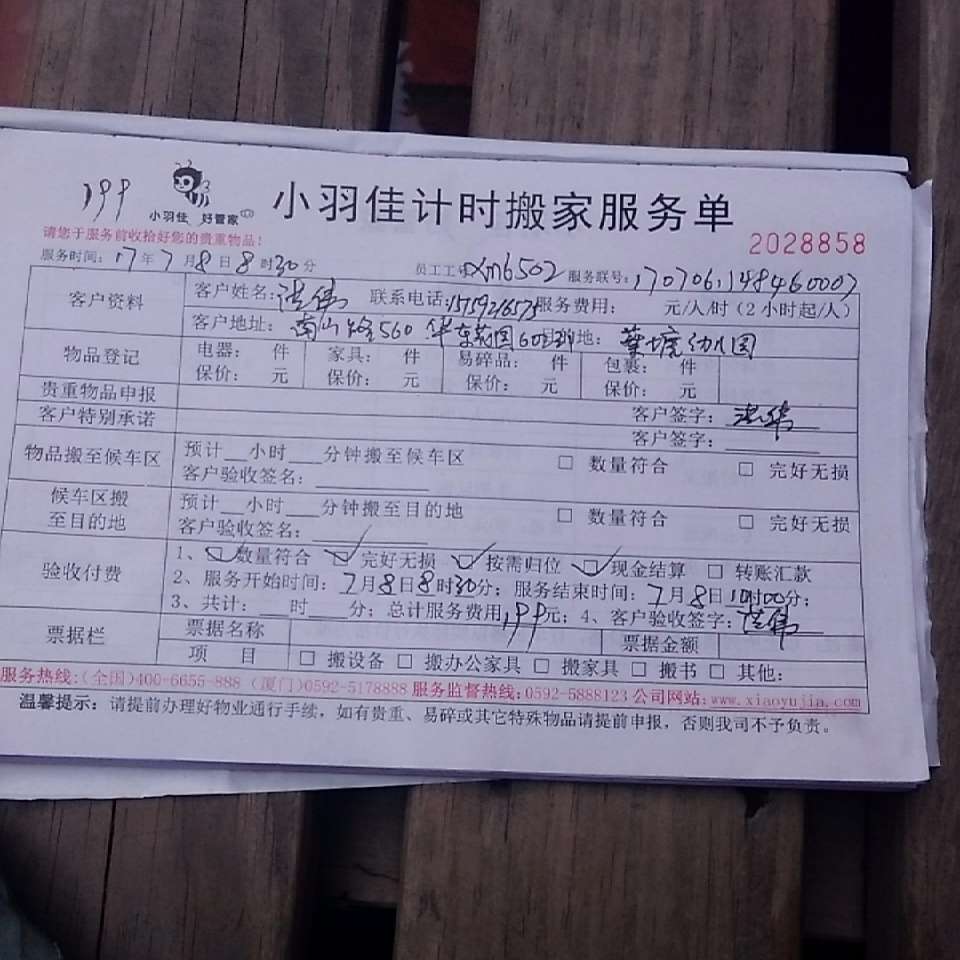 199 小羽佳 好管家 小羽佳计时搬家服务单
2028858
请您于服务前收拾好您的贵重物品！
服务时间：17年7月8日8时30分 员工工号 xm6502 服务联号：1707061484460007
客户资料 客户姓名：洪伟 联系电话： 服务费用： 元/人/时（2小时起/人）
客户地址：南山路560 华东花园 地：葉塘幼儿园
物品登记 电器： 件 家具： 件 易碎品： 件 包裹： 件
保价： 元 保价： 元 保价： 元 保价： 元
贵重物品申报 客户签字：洪伟
客户特别承诺 客户签字：
物品搬至候车区 预计__小时__分钟搬至候车区 □ 数量符合 □ 完好无损
客户验收签名：
候车区搬至目的地 预计__小时__分钟搬至目的地 □ 数量符合 □ 完好无损
客户验收签名：
验收付费 1、☑数量符合 ☑完好无损 ☑按需归位 ☑现金结算 □ 转账汇款
2、服务开始时间：7月8日8时30分；服务结束时间：7月8日10时00分；
3、共计：__时__分；总计服务费用199元；4、客户验收签字：洪伟
票据栏 票据名称 票据金额
项 目 □ 搬设备 □ 搬办公家具 □ 搬家具 □ 搬书 □ 其他：
服务热线：（全国）400-6655-888（厦门）0592-5178888 服务监督热线：0592-5888123 公司网站：www.xiaoyujia.com
温馨提示：请提前办理好物业通行手续，如有贵重、易碎或其它特殊物品请提前申报，否则我司不予负责。